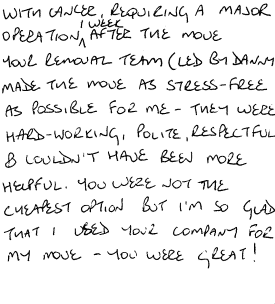 WITH CANCER, REQUIRING A MAJOR
OPERATION 1 WEEK AFTER THE MOVE
YOUR REMOVAL TEAM (LED BY DANNY
MADE THE MOVE AS STRESS-FREE
AS POSSIBLE FOR ME - THEY WERE
HARD-WORKING, POLITE, RESPECTFUL
& COULDN'T HAVE BEEN MORE
HELPFUL. YOU WERE NOT THE
CHEAPEST OPTION BUT I'M SO GLAD
THAT I USED YOUR COMPANY FOR
MY MOVE - YOU WERE GREAT!